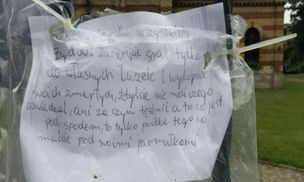 dla wszystkich
Żydów. Zwierząt szał tylko
do własnych i wykopcie
swoich zmarłych, żebyście nie mieli czego
odwiedzać, ani za czym tęsknić a to co jest
pod spodem, to tylko próbka tego co
macie pod swoimi jarmułkami